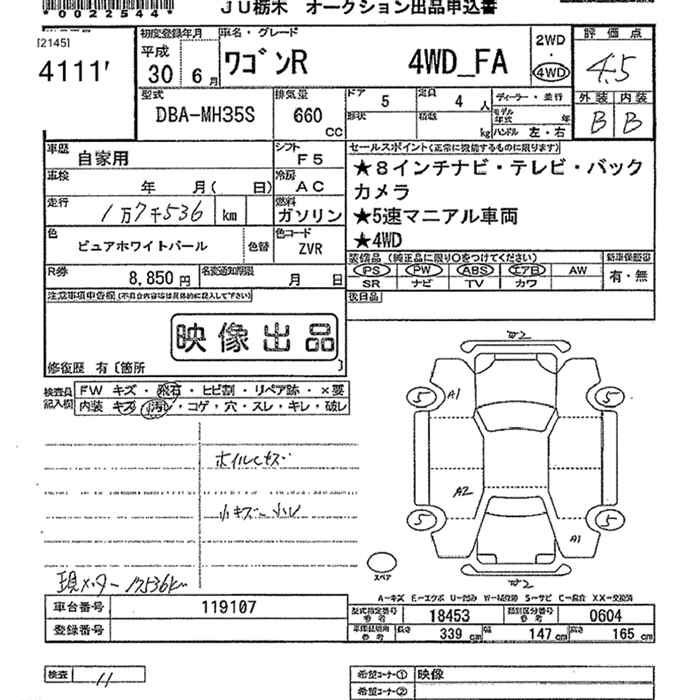 *0022544*
JU栃木 オークション出品申込書
[2145]
4111'
初度登録年月
平成
30年 6月
車名・グレード
ワゴンR 4WD_FA
2WD
・
4WD
評価点
4.5
外装 内装
B B
型式
DBA-MH35S
排気量
660
CC
ドア
5
形状
定員
4 人
積載
kg
ディーラー・並行
モデル年式 年
ハンドル 左・右
車歴
自家用
シフト
F5
車検
年 月( 日)
冷房
AC
走行
1万7千536 km
燃料
ガソリン
色
ピュアホワイトパール
色替
色コード
ZVR
R券
8,850 円
名変通知期限
月 日
セールスポイント(正常に機能するものに限ります)
★8インチナビ・テレビ・バック
カメラ
★5速マニアル車両
★4WD
装備品(純正品に限り○をつけてください)
PS PW ABS エアB AW
SR ナビ TV カワ
新車保証書
有・無
後日品
注意事項申告欄(不具合内容等は具体的に記入して下さい)
映像出品
修復歴 有〔箇所 〕
検査員
記入欄
FW キズ・飛石・ヒビ割・リペア跡・×要
内装 キズ・汚レ・コゲ・穴・スレ・キレ・破レ
ホイルキズ
小キズ 小ヘ
現メーター 17536km
5 A1 5
A2
5 A1 5
スペア
A-キズ E-エクボ U-凹み W-補修跡 S-サビ C-腐食 XX-交換済
車台番号
119107
登録番号
型式指定番号
参考
18453
類別区分番号
参考
0604
車体記録用
参考
長さ
339 cm
幅
147 cm
高さ
165 cm
検査
11
希望コーナー① 映像
希望コーナー②